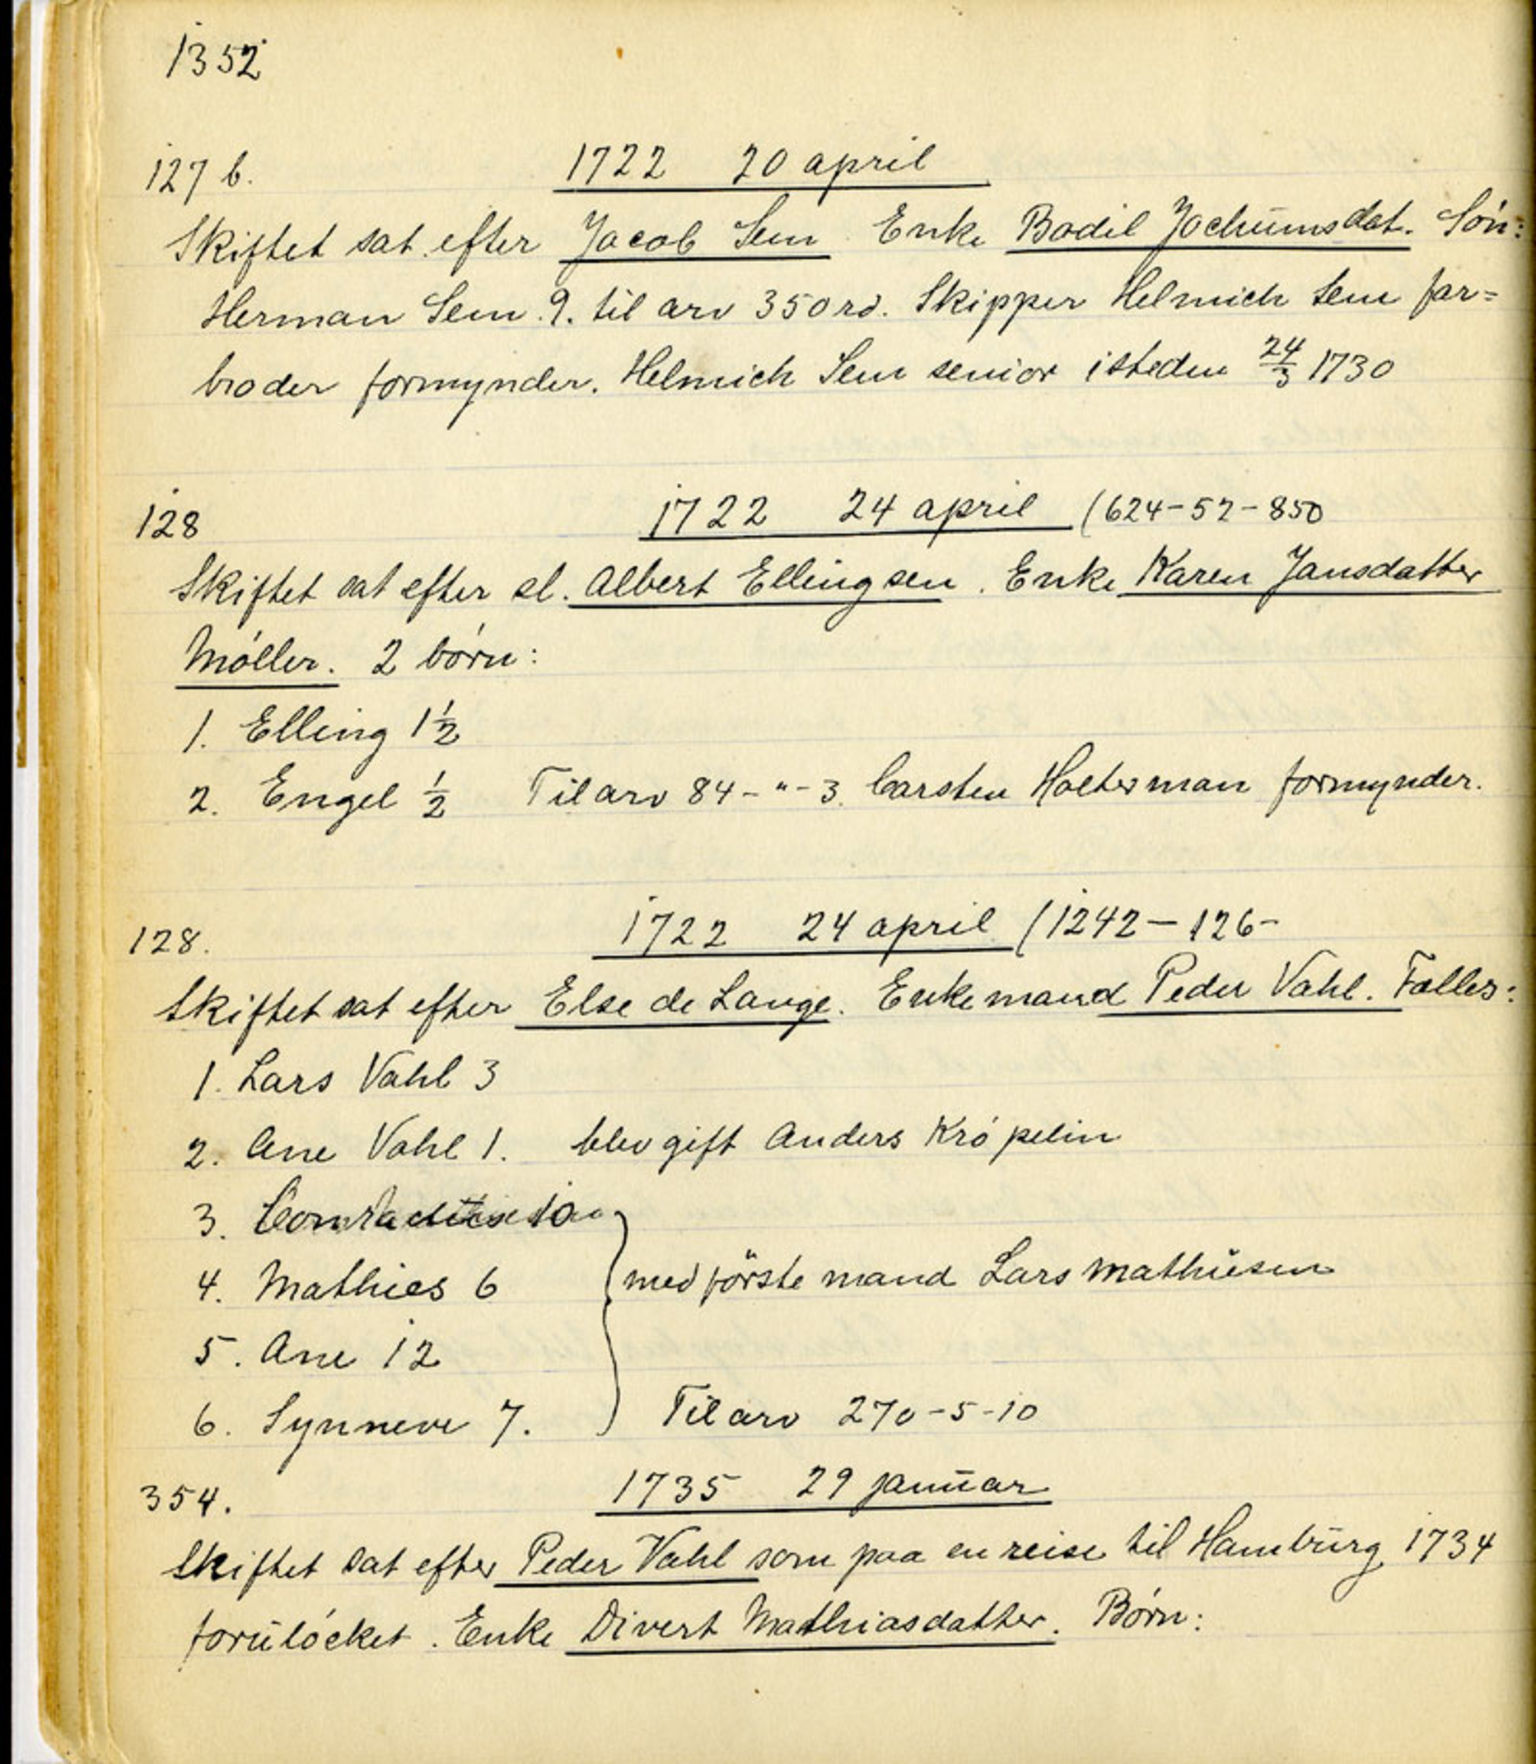 1352
127 b. 1722 20 april
Skiftet sat efter Jacob Sem Enke Bodil Jochumsdat. Søn:
Herman Sem 9. til arv 350 rd. Skipper Helmich Sem far=
broder formynder. Helmich Sem senior isteden 24/3 1730
128 1722 24 april (624-52-850
Skiftet sat efter sl. Albert Ellingsen. Enke Karen Jansdatter
Møller. 2 børn:
1. Elling 1½
2. Engel ½ Til arv 84-"-3. Carsten Holterman formynder.
128. 1722 24 april (1242-126-
Skiftet sat efter Else de Lange. Enkemand Peder Vahl. Fælles:
1. Lars Vahl 3
2. Ane Vahl 1. blev gift Anders Krøpelin
3.
4. Mathies 6 med første mand Lars Mathiesen
5. Ane 12
6. Synneve 7. Til arv 270-5-10
354. 1735 29 januar
Skiftet sat efter Peder Vahl som paa en reise til Hamburg 1734
forulöcket. Enke Divert Mathiasdatter. Børn: